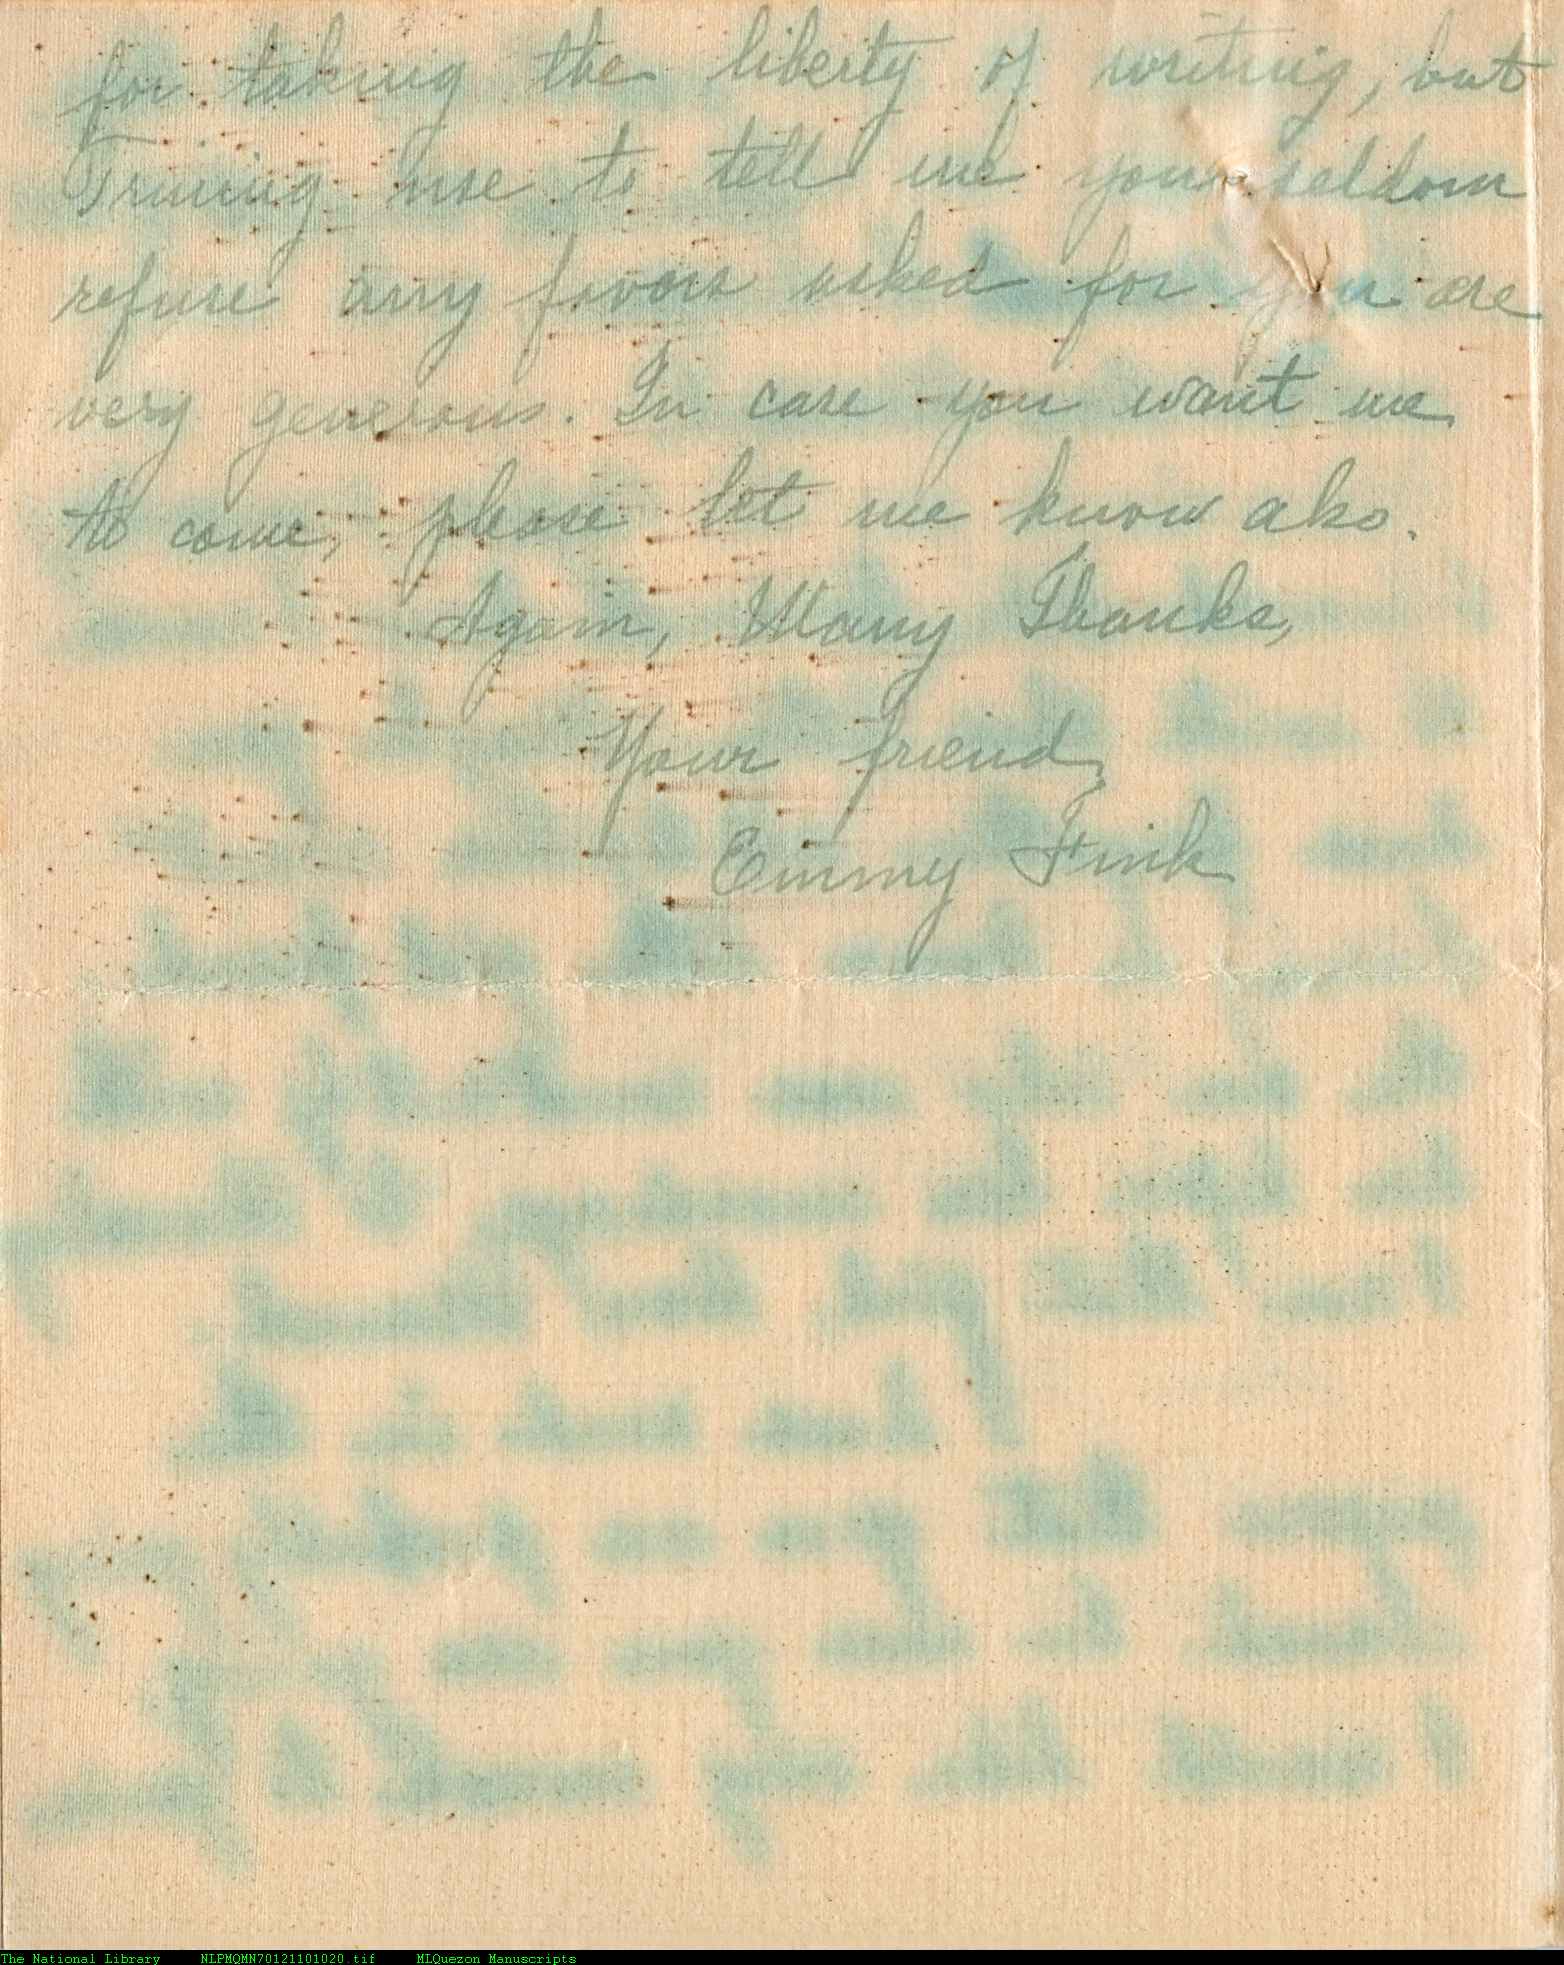 for taking the liberty of writing, but
Trining use to tell me you seldom
refuse any favors asked for you are
very generous. In case you want me
to come, please let me know also.
Again, Many Thanks,
Your friend,
Emmy Fink
The National Library NLPMQMN70121101020.tif MLQuezon Manuscripts